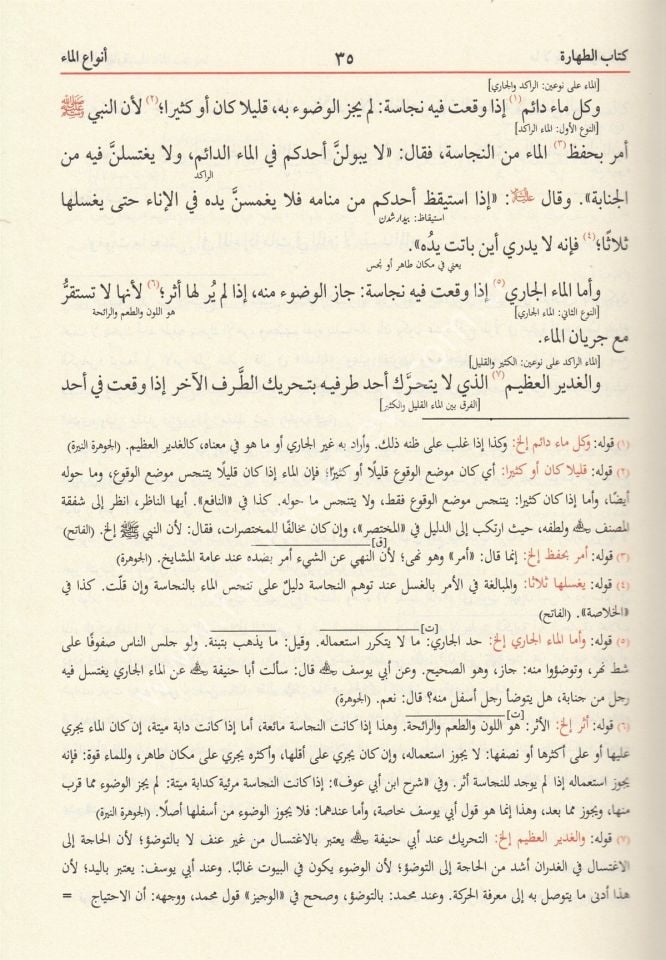 كتاب الطهارة ٣٥ أنواع الماء
[الماء على نوعين: الراكد والجاري]
وكل ماء دائم(١) إذا وقعت فيه نجاسة: لم يجز الوضوء به، قليلا كان أو كثيرا؛(٢) لأن النبي ﷺ
[النوع الأول: الماء الراكد]
أمر بحفظ(٣) الماء من النجاسة، فقال: «لا يبولنَّ أحدكم في الماء الدائم، ولا يغتسلنَّ فيه من
الراكد
الجنابة». وقال ﷺ: «إذا استيقظ أحدكم من منامه فلا يغمسنَّ يده في الإناء حتى يغسلها
استيقاظ: بیدار شدن
ثلاثًا؛(٤) فإنه لا يدري أين باتت يدُه».
يعني في مكان طاهر أو نجس
وأما الماء الجاري(٥) إذا وقعت فيه نجاسة: جاز الوضوء منه، إذا لم يُر لها أثر؛(٦) لأنها لا تستقرُّ
[النوع الثاني: الماء الجاري] هو اللون والطعم والرائحة
مع جريان الماء.
[الماء الراكد على نوعين: الكثير والقليل]
والغدير العظيم(٧) الذي لا يتحرَّك أحد طرفيه بتحريك الطَّرف الآخر إذا وقعت في أحد
[الفرق بين الماء القليل والكثير]
(١) قوله: وكل ماء دائم إلخ: وكذا إذا غلب على ظنه ذلك. وأراد به غير الجاري أو ما هو في معناه، كالغدير العظيم. (الجوهرة النيرة)
(٢) قوله: قليلا كان أو كثيرا: أي كان موضع الوقوع قليلًا أو كثيرًا؛ فإن الماء إذا كان قليلًا يتنجس موضع الوقوع، وما حوله
أيضًا، وأما إذا كان كثيرا: يتنجس موضع الوقوع فقط، ولا يتنجس ما حوله. كذا في «النافع». أيها الناظر، انظر إلى شفقة
المصنف ﵀ ولطفه، حيث ارتكب إلى الدليل في «المختصر»، وإن كان مخالفًا للمختصرات، فقال: لأن النبي ﷺ إلخ. (الفاتح)
[ق]
(٣) قوله: أمر بحفظ إلخ: إنما قال: «أمر» وهو نهى؛ لأن النهي عن الشيء أمر بضده عند عامة المشايخ. (الجوهرة)
(٤) قوله: يغسلها ثلاثا: والمبالغة في الأمر بالغسل عند توهم النجاسة دليلٌ على تنجس الماء بالنجاسة وإن قلّت. كذا في
«الخلاصة». (الفاتح)
[ت]
(٥) قوله: وأما الماء الجاري إلخ: حد الجاري: ما لا يتكرر استعماله. وقيل: ما يذهب بتبنة. ولو جلس الناس صفوفًا على
شط نهر، وتوضؤوا منه: جاز، وهو الصحيح. وعن أبي يوسف ﵀ قال: سألت أبا حنيفة ﵀ عن الماء الجاري يغتسل فيه
رجل من جنابة، هل يتوضأ رجل أسفل منه؟ قال: نعم. (الجوهرة)
[ت]
(٦) قوله: أثر إلخ: الأثر: هو اللون والطعم والرائحة. وهذا إذا كانت النجاسة مائعة، أما إذا كانت دابة ميتة، إن كان الماء يجري
عليها أو على أكثرها أو نصفها: لا يجوز استعماله، وإن كان يجري على أقلها، وأكثره يجري على مكان طاهر، وللماء قوة: فإنه
يجوز استعماله إذا لم يوجد للنجاسة أثر. وفي «شرح ابن أبي عوف»: إذا كانت النجاسة مرئية كدابة ميتة: لم يجز الوضوء مما قرب
منها، ويجوز مما بعد، وهذا إنما هو قول أبي يوسف خاصة، وأما عندهما: فلا يجوز الوضوء من أسفلها أصلًا. (الجوهرة النيرة)
(٧) قوله: والغدير العظيم إلخ: التحريك عند أبي حنيفة ﵀ يعتبر بالاغتسال من غير عنف لا بالتوضؤ؛ لأن الحاجة إلى
الاغتسال في الغدران أشد من الحاجة إلى التوضؤ؛ لأن الوضوء يكون في البيوت غالبًا. وعند أبي يوسف: يعتبر باليد؛ لأن
هذا أدنى ما يتوصل به إلى معرفة الحركة. وعند محمد: بالتوضؤ، وصحح في «الوجيز» قول محمد، ووجهه: أن الاحتياج =